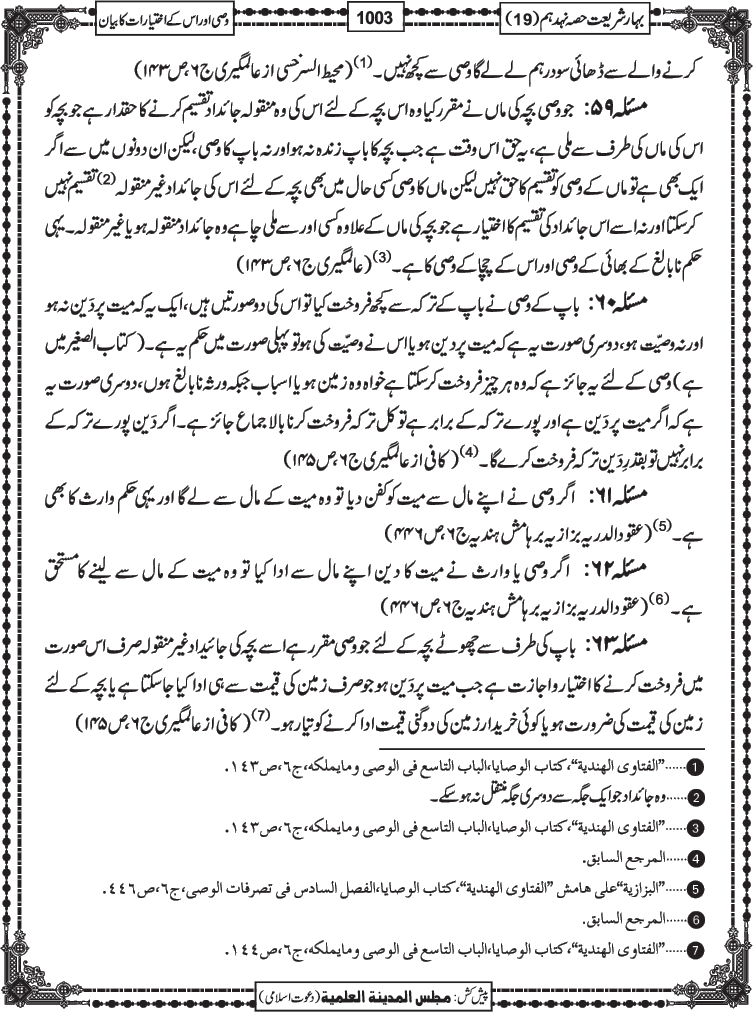 بہارِ شریعت حصہ نہدہم (19)
1003
وصی اور اس کے اختیارات کا بیان
کرنے والے سے ڈھائی سو درہم لے لے گا وصی سے کچھ نہیں۔(1) (محیط السرخسی از عالمگیری ج۶، ص۱۴۳)
مسئلہ ۵۹: جو وصی بچہ کی ماں نے مقرر کیا وہ اس بچہ کے لئے اس کی وہ منقولہ جائداد تقسیم کرنے کا حقدار ہے جو بچہ کو
اس کی ماں کی طرف سے ملی ہے، یہ حق اس وقت ہے جب بچہ کا باپ زندہ نہ ہو اور نہ باپ کا وصی، لیکن ان دونوں میں سے اگر
ایک بھی ہے تو ماں کے وصی کو تقسیم کا حق نہیں لیکن ماں کا وصی کسی حال میں بھی بچہ کے لئے اس کی جائداد غیر منقولہ (2) تقسیم نہیں
کرسکتا اور نہ اسے اس جائداد کی تقسیم کا اختیار ہے جو بچہ کی ماں کے علاوہ کسی اور سے ملی چاہے وہ جائداد منقولہ ہو یا غیر منقولہ۔ یہی
حکم نابالغ کے بھائی کے وصی اور اس کے چچا کے وصی کا ہے۔(3) (عالمگیری ج۶، ص۱۴۳)
مسئلہ ۶۰: باپ کے وصی نے باپ کے ترکہ سے کچھ فروخت کیا تو اس کی دو صورتیں ہیں، ایک یہ کہ میت پر دَین نہ ہو
اور نہ وصیّت ہو، دوسری صورت یہ ہے کہ میت پر دین ہو یا اس نے وصیّت کی ہو تو پہلی صورت میں حکم یہ ہے۔ (کتاب الصغیر میں
ہے) وصی کے لئے یہ جائز ہے کہ وہ ہر چیز فروخت کرسکتا ہے خواہ وہ زمین ہو یا اسباب جبکہ ورثہ نابالغ ہوں، دوسری صورت یہ
ہے کہ اگر میت پر دَین ہے اور پورے ترکہ کے برابر ہے تو کل ترکہ فروخت کرنا بالاجماع جائز ہے۔ اگر دَین پورے ترکہ کے
برابر نہیں تو بقدرِ دَین ترکہ فروخت کرے گا۔(4) (کافی از عالمگیری ج۶، ص۱۴۵)
مسئلہ ۶۱: اگر وصی نے اپنے مال سے میت کو کفن دیا تو وہ میت کے مال سے لے گا اور یہی حکم وارث کا بھی
ہے۔(5) (عقود الدریہ بزازیہ برہامش ہندیہ ج۶، ص۴۴۶)
مسئلہ ۶۲: اگر وصی یا وارث نے میت کا دین اپنے مال سے ادا کیا تو وہ میت کے مال سے لینے کا مستحق
ہے۔(6) (عقود الدریہ بزازیہ برہامش ہندیہ ج۶، ص۴۴۶)
مسئلہ ۶۳: باپ کی طرف سے چھوٹے بچہ کے لئے جو وصی مقرر ہے اسے بچہ کی جائیداد غیر منقولہ صرف اس صورت
میں فروخت کرنے کا اختیار و اجازت ہے جب میت پر دَین ہو جو صرف زمین کی قیمت سے ہی ادا کیا جاسکتا ہے یا بچہ کے لئے
زمین کی قیمت کی ضرورت ہو یا کوئی خریدار زمین کی دوگنی قیمت ادا کرنے کو تیار ہو۔(7) (کافی از عالمگیری ج۶، ص۱۴۵)
1......"الفتاوی الهندية"،كتاب الوصايا،الباب التاسع فی الوصی ومايملكه،ج٦،ص١٤٣.
2......وہ جائداد جو ایک جگہ سے دوسری جگہ منتقل نہ ہوسکے۔
3......"الفتاوی الهندية"،كتاب الوصايا،الباب التاسع فی الوصی ومايملكه،ج٦،ص١٤٣.
4......المرجع السابق.
5......"البزازية"علی هامش "الفتاوی الهندية"،كتاب الوصايا،الفصل السادس فی تصرفات الوصی،ج٦،ص٤٤٦.
6......المرجع السابق.
7......"الفتاوی الهندية"،كتاب الوصايا،الباب التاسع فی الوصی ومايملكه،ج٦،ص١٤٤.
پیش کش: مجلس المدينة العلمية (دعوتِ اسلامی)